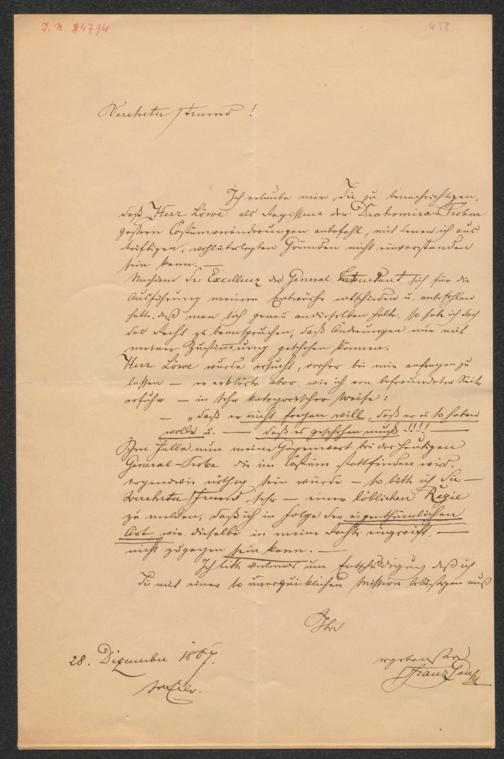 I. N. 84794
458
Verehrter Freund!
Ich erlaube mir, Sie zu benachrichtigen,
daß Herr Löwe als Regisseur der Drahomira-Proben
gestern Costümveränderungen anbefahl, mit denen ich aus
triftigen, wohlüberlegten Gründen nicht einverstanden
sein kann. —
Nachdem Se Excellenz der General-Intendant sich für die
Ausführung meiner Entwürfe entschieden u. anbefohlen
hatte, daß man sich genau an dieselben halte, so habe ich doch
das Recht zu beanspruchen, daß Änderungen nur mit
meiner Zustimmung geschehen können.
Herr Löwe wurde ersucht, vorher bei mir anfragen zu
lassen — er erklärte aber, wie ich von befreundeter Seite
erfuhr — in sehr kategorischer Weise:
— „daß er nicht fragen will, daß er es so haben
wolle u. — daß es geschehen muß!!!!
Im Falle nun meine Gegenwart bei der heutigen
General-Probe die im Costüm stattfinden wird,
irgendwie nöthig sein würde — so bitte ich Sie —
verehrter Freund sehr — einer löblichen Regie
zu melden, daß ich in Folge der eigenthümlichen
Art, wie dieselbe in meine Rechte eingreift —
nicht zugegen sein kann. —
Ich bitte vielmals um Entschuldigung daß ich
Sie mit einer so unerquicklichen Mission belästigen muß
Ihr
ergebenster
28. Dezember 1867.
Franz